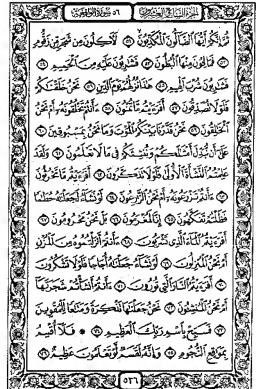 الجزء السابع والعشرون ٥٦ سورة الواقعة
ثم إنكم أيها الضالون المكذبون ٥١ لآكلون من شجر من زقوم
٥٢ فمالئون منها البطون ٥٣ فشاربون عليه من الحميم ٥٤
فشاربون شرب الهيم ٥٥ هذا نزلهم يوم الدين ٥٦ نحن خلقناكم
فلولا تصدقون ٥٧ أفرأيتم ما تمنون ٥٨ ءأنتم تخلقونه أم نحن
الخالقون ٥٩ نحن قدرنا بينكم الموت وما نحن بمسبوقين ٦٠
على أن نبدل أمثالكم وننشئكم في ما لا تعلمون ٦١ ولقد
علمتم النشأة الأولى فلولا تذكرون ٦٢ أفرأيتم ما تحرثون
٦٣ ءأنتم تزرعونه أم نحن الزارعون ٦٤ لو نشاء لجعلناه حطاما
فظلتم تفكهون ٦٥ إنا لمغرمون ٦٦ بل نحن محرومون ٦٧
أفرأيتم الماء الذي تشربون ٦٨ ءأنتم أنزلتموه من المزن
أم نحن المنزلون ٦٩ لو نشاء جعلناه أجاجا فلولا تشكرون
٧٠ أفرأيتم النار التي تورون ٧١ ءأنتم أنشأتم شجرتها
أم نحن المنشئون ٧٢ نحن جعلناها تذكرة ومتاعا للمقوين
٧٣ فسبح باسم ربك العظيم ٧٤ * فلا أقسم
بمواقع النجوم ٧٥ وإنه لقسم لو تعلمون عظيم ٧٦
٥٣٦